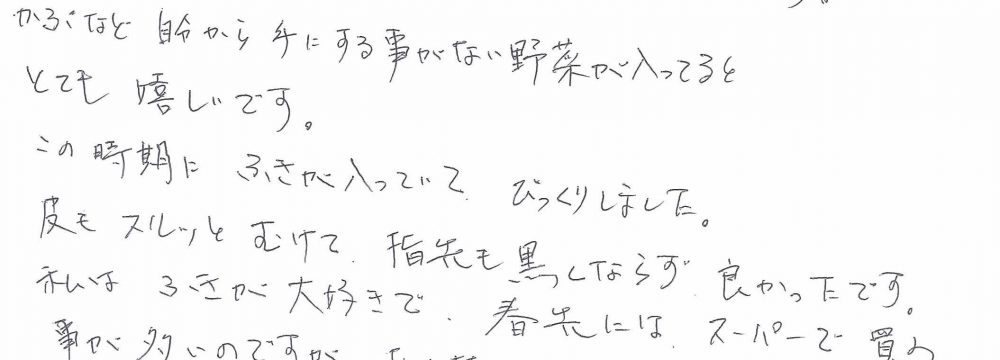 かぶなど 自分から手にする事がない野菜が入ってると
とても 嬉しいです。
この時期に ふきが入っていて、びっくりしました。
皮も スルッと むけて、指先も黒くならず、良かったです。
私は ふきが大好きで、春先には、スーパーで買う
事が多いのですが